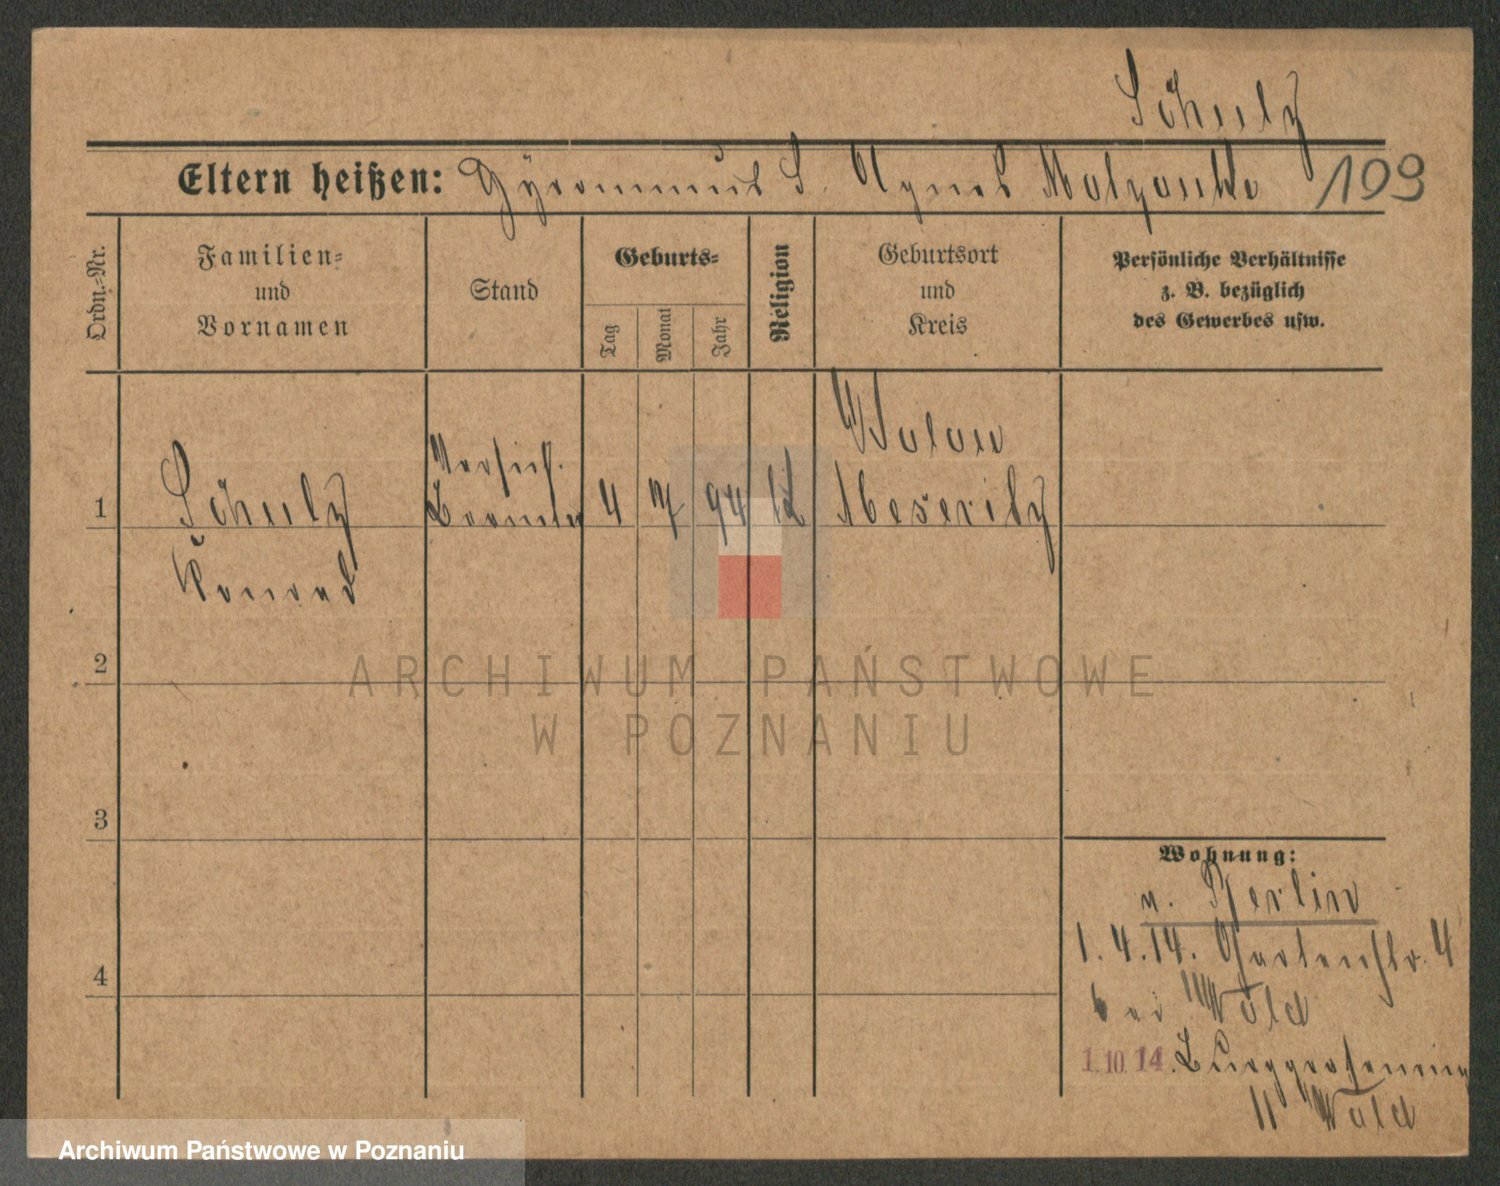 Schulz
Eltern heißen: Hyronimus S. Agnes Matzanke 109
Ordn.-Nr.
Familien-
und
Vornamen
Stand
Geburts-
Tag
Monat
Jahr
Religion
Geburtsort
und
Kreis
Persönliche Verhältnisse
z. B. bezüglich
des Gewerbes usw.
1
Schulz
Konrad
Versich.
Beamter
4
7
94
k
Meseritz
2
3
4
Wohnung:
n. Berlin
1.4.14. Gartenstr. 4
bei Wold
1.10.14. Burggrafenring
11 Wold
ARCHIWUM PAŃSTWOWE
W POZNANIU
Archiwum Państwowe w Poznaniu